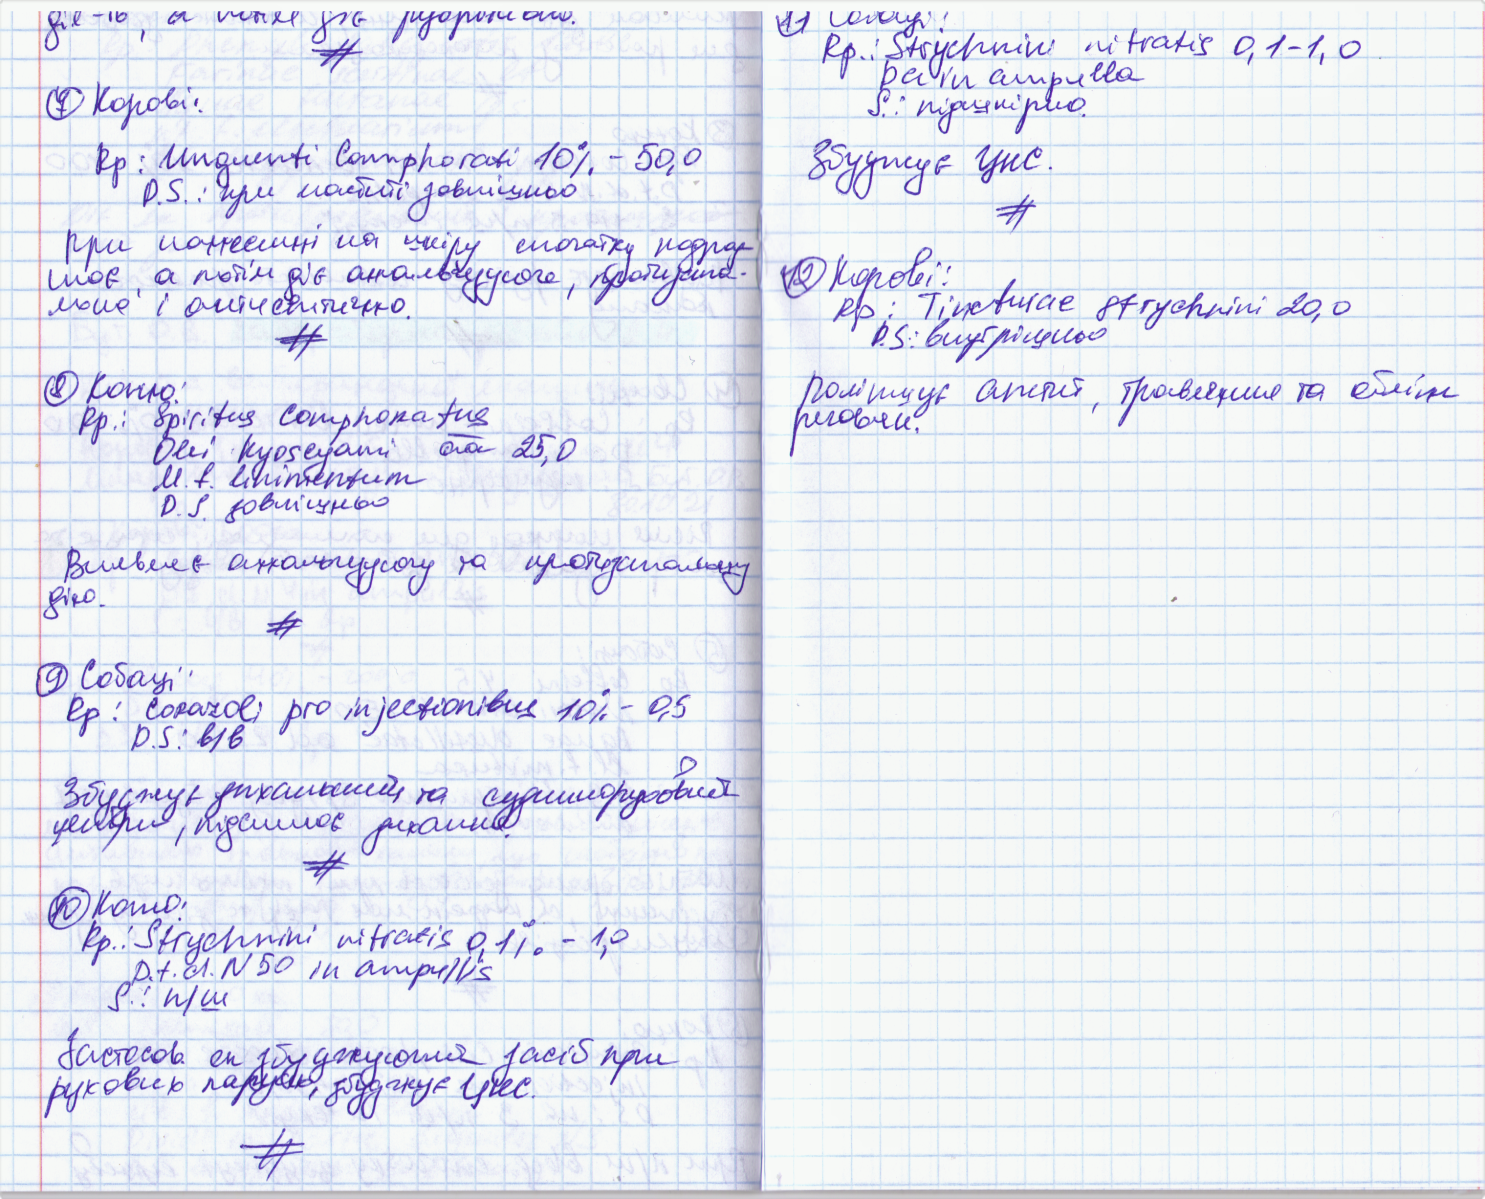 ⑦ Корові:
Rp: Unguenti Camphorati 10% - 50,0
D.S.: при маститі зовнішньо
При нанесенні на шкіру спочатку подраз-
нює, а потім діє анальгезуюче, протизапа-
льно і антисептично.
⑧ Коню:
Rp.: Spiritus Camphoratus
Olei Hyoscyami āā 25,0
M.f. linimentum
D.S. зовнішньо
Виявляє анальгезуючу та протизапальну
дію.
⑨ Собаці:
Rp: Corazoli pro injectionibus 10% - 0,5
D.S: в/в
Збуджує дихальний та судиноруховий
центри, підсилює дихання.
⑩ Коню:
Rp.: Strychnini nitratis 0,1% - 1,0
D.t.d. N 50 in ampullis
S.: п/ш
Застосов як збуджуючий засіб при
рухових , збуджує ЦНС.
11 Собаці:
Rp.: Strychnini nitratis 0,1-1,0
in ampulla
S.: підшкірно.
Збуджує ЦНС.
⑫ Корові:
Rp: Tincturae strychnini 20,0
D.S: внутрішньо
Поліпшує апетит, травлення та обмін
речовин.